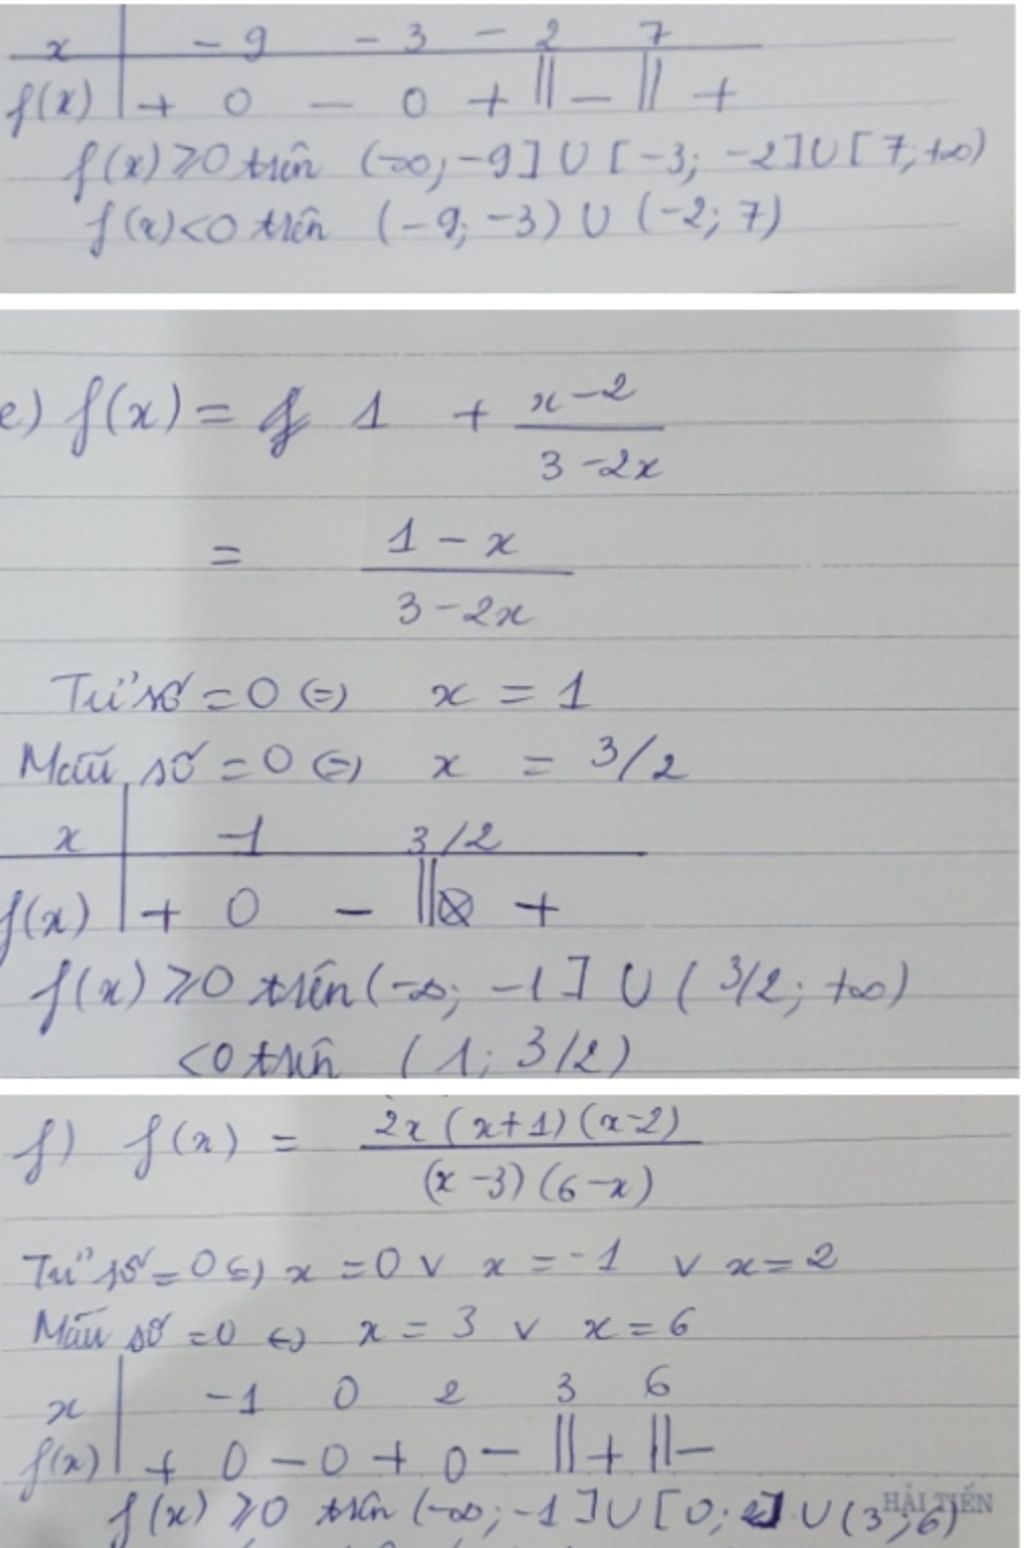 x | -9 -3 -2 7
f(x) | + 0 - 0 + || - || +
f(x) ≥ 0 trên (-∞; -9] ∪ [-3; -2] ∪ [7; +∞)
f(x) < 0 trên (-9; -3) ∪ (-2; 7)
e) f(x) = 1 + (x-2)/(3-2x)
= (1-x)/(3-2x)
Tử số = 0 ⇔ x = 1
Mẫu số = 0 ⇔ x = 3/2
x | -1 3/2
f(x) | + 0 - || +
f(x) ≥ 0 trên (-∞; -1] ∪ (3/2; +∞)
< 0 trên (1; 3/2)
f) f(x) = 2x(x+1)(x-2)/(x-3)(6-x)
Tử số = 0 ⇔ x = 0 ∨ x = -1 ∨ x = 2
Mẫu số = 0 ⇔ x = 3 ∨ x = 6
x | -1 0 2 3 6
f(x) | + 0 - 0 + 0 - || + || -
f(x) ≥ 0 trên (-∞; -1] ∪ [0; 2] ∪ (3; 6)
HẢI TIẾN